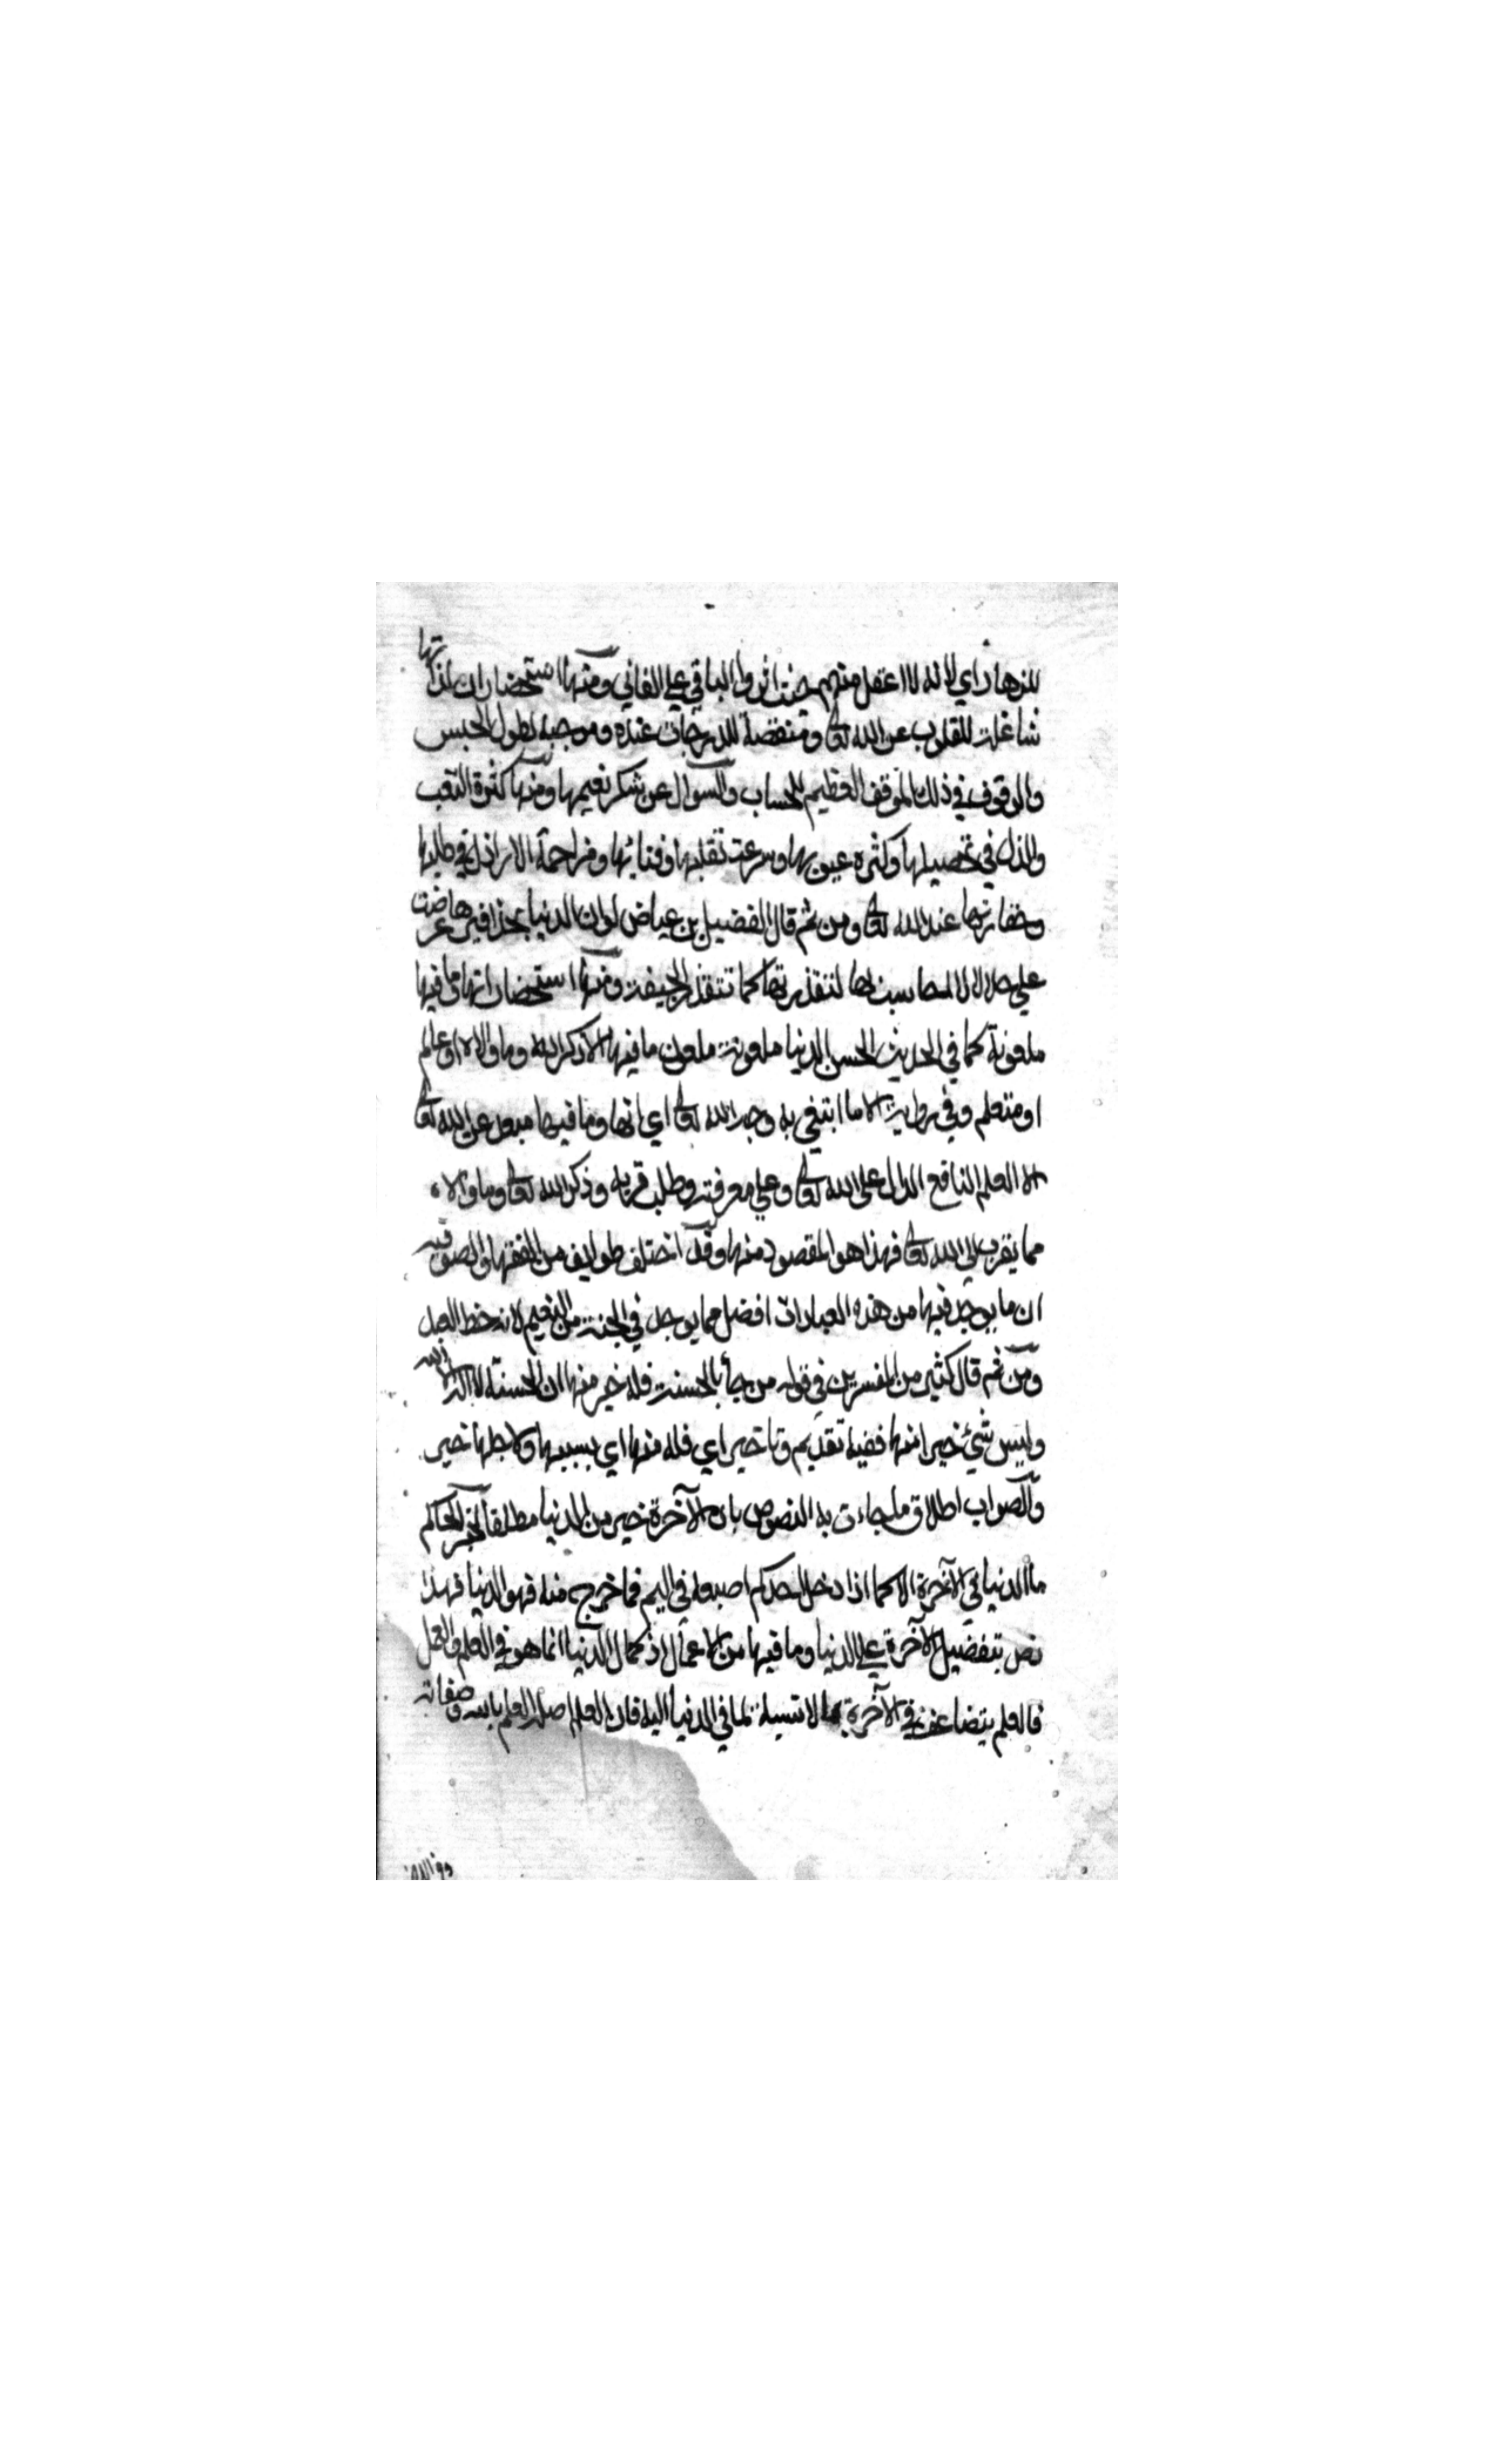 للزهاد اي لانه لا اعقل منهم حيث اثروا الباقي علي الفاني ومنها استحضار ان لذاتها
شاغلة للقلوب عن الله تعالى ومنقصة للدرجات عنده وموجبة لطول الحبس
والوقوف في ذلك الموقف العظيم للحساب والسوال عن شكر نعيمها ومنها كثرة التعب
والذل في تحصيلها وكثرة عيوبها وسرعة تقلبها وفنائها ومزاحمة الاراذل في طلبها
وحقارتها عند الله تعالى ومن ثم قال الفضيل بن عياض لو ان الدنيا بحذافيرها عرضت
علي حلالا لا احاسب بها لتقذرتها كما تتقذر الجيفة ومنها استحضار انها وما فيها
ملعونة كما في الحديث الحسن الدنيا ملعونة ملعون ما فيها الا ذكر الله وما والاه او عالم
او متعلم وفي رواية الا ما ابتغي به وجه الله تعالى اي انها وما فيها مبعد عن الله تعالى
الا العلم النافع الدال على الله تعالى وعلي معرفته وطلب قربه وذكر الله تعالى وما والاه
مما يقرب الي الله تعالى فهذا هو المقصود منها وقد اختلف طوايف من الفقها والصوفيه
ان ما يوجد فيها من هذه العبادات افضل مما يوجد في الجنة من النعيم لانه حظ العبد
ومن ثم قال كثير من المفسرين في قوله من جأ بالحسنة فله خير منها ان الحسنة لا اله الا الله
وليس شئ خير امنها ففيه تقديم وتاخير اي فله منها اي بسببها ولاجلها خير
والصواب اطلاق ما جاءت به النصوص بان الآخرة خير من الدنيا مطلقا لخبر الحاكم
ما الدنيا في الآخرة الا كما اذا دخل احدكم اصبعه في اليم فما خرج منه فهو الدنيا فهذا
نص بتفضيل الآخرة علي الدنيا وما فيها من الاعمال اذ كمال الدنيا انما هو في العلم والعمل
فالعلم يتضاعف في الآخرة بما لا نسبة لما في الدنيا اليه فان العلم اصله العلم بالله وصفاته